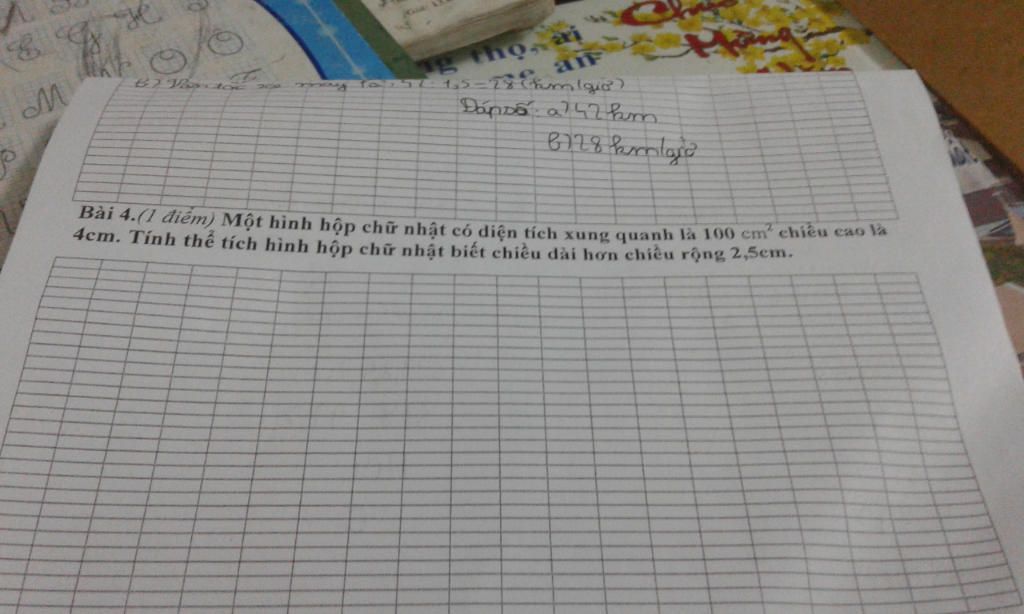 Chúc
thọ, ai
Hồng
an
1,5 = 28 (km/giờ)
Đáp số: a) 42 km
b) 28 km/giờ
Bài 4.(1 điểm) Một hình hộp chữ nhật có diện tích xung quanh là 100 cm² chiều cao là
4cm. Tính thể tích hình hộp chữ nhật biết chiều dài hơn chiều rộng 2,5cm.